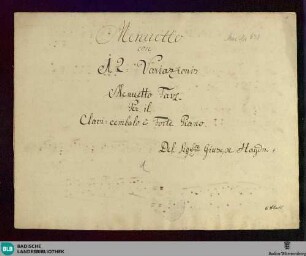 Menuetto
con
12 Variazioni
Menuetto
Per il
Clavi-cembalo o Forte Piano.
Del Sigre Giuseppe Haydn.
BLB BADISCHE
LANDESBIBLIOTHEK
Baden-Württemberg